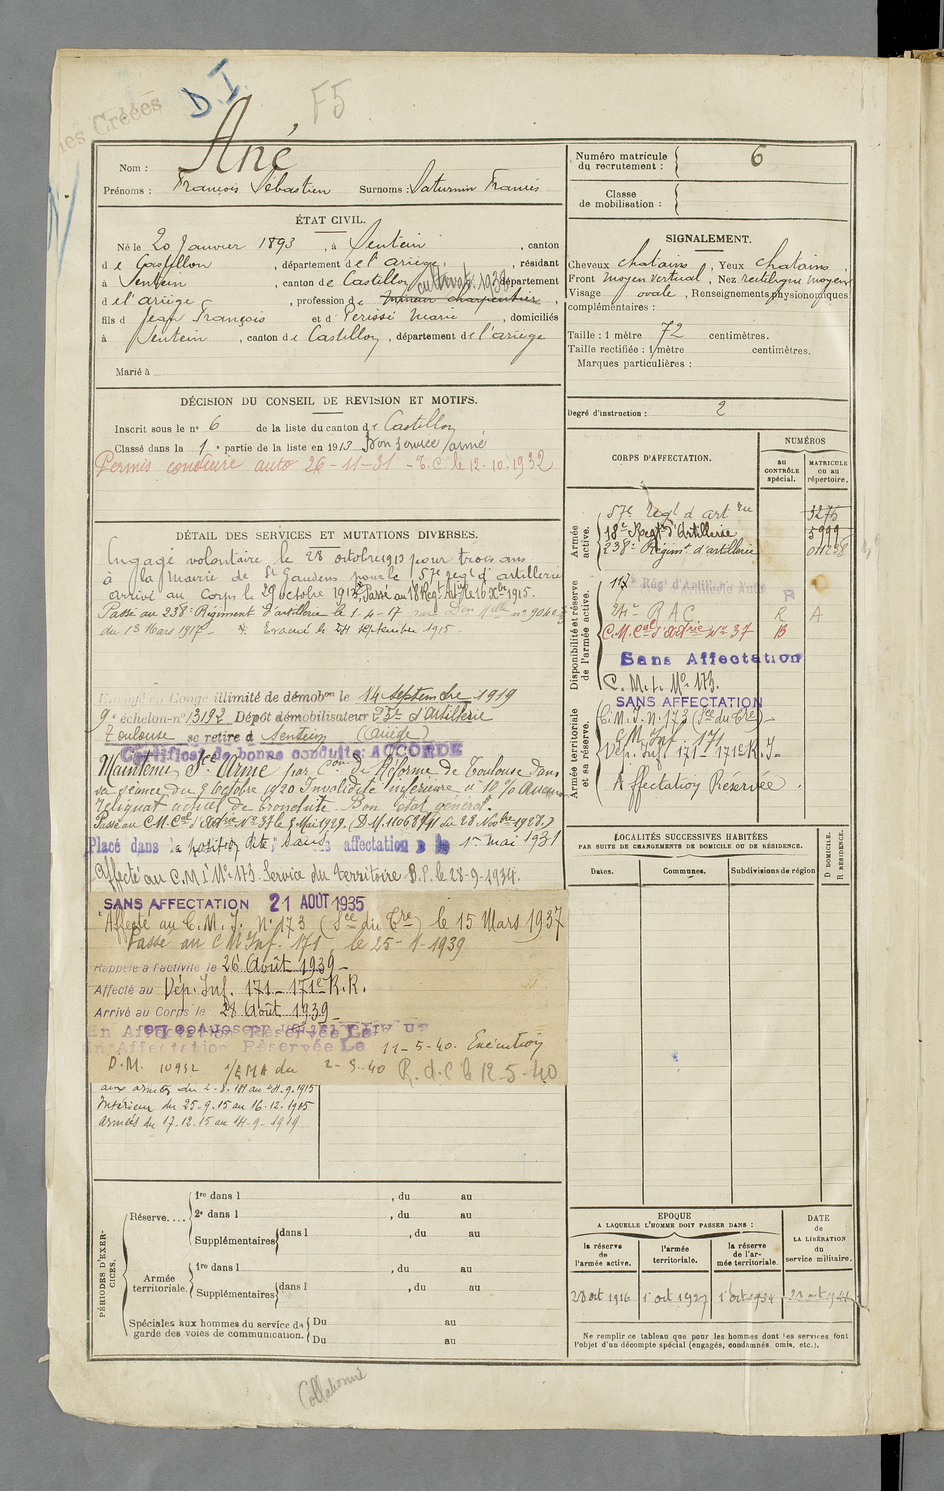 les Créées
D.I.
F5
Nom : Ané
Prénoms : François Sébastien Surnoms : Saturnin Francis
Numéro matricule du recrutement : 6
Classe de mobilisation :
ÉTAT CIVIL.
Né le 20 Janvier 1893, à Sentein, canton
de Castillon, département de l'ariège, résidant
à Sentein, canton de Castillon, département
cultivat. 1938
d el'ariège, profession de mineur charpentier,
fils d Jean François et d Périssé Marie, domiciliés
à Sentein, canton de Castillon, département de l'ariège
Marié à
SIGNALEMENT.
Cheveux chatains, Yeux chatains,
Front moyen vertical, Nez rectiligne moyen
Visage ovale, Renseignements physionomiques
complémentaires :
Taille : 1 mètre 72 centimètres.
Taille rectifiée : 1 mètre centimètres.
Marques particulières :
Degré d'instruction : 2
DÉCISION DU CONSEIL DE REVISION ET MOTIFS.
Inscrit sous le n° 6 de la liste du canton de Castillon
Classé dans la 1e partie de la liste en 1913 Bon Service armé
Permis conduire auto 26-11-31 - T.C. le 12-10-1932
DÉTAIL DES SERVICES ET MUTATIONS DIVERSES.
Engagé volontaire le 28 octobre 1913 pour trois ans
à la mairie de St Gaudens pour le 57e regt d'artillerie
arrivé au Corps le 29 octobre 1913. Passé au 18 Regt
Passé au 238e Régiment d'artillerie le 1-4-17
du 13 Mars 1917 - Evacué le 24 septembre 1915.
illimité de démobon le 14 Septembre 1919
9e échelon-no 13192 Dépôt démobilisateur d'artillerie
Toulouse se retire à Sentein (Ariège)
Certificat de bonne conduite : ACCORDÉ
Maintenu Sce Armé par Con de Réforme de Toulouse dans
sa séance du 9 Octobre 1920 Invalidité inférieure à 10 %
reliquat actuel de bronchite. Bon état général.
Passé au C.M. Cal d'Artrie No 37 le 5 Mai 1929. (D.M. du 28 Novbre 1928.)
Placé dans la position dite, sans affectation le 1er mai 1931
Affecté au C.M.I No 173 Service du Territoire B.P. le 28-9-1934.
SANS AFFECTATION 21 AOUT 1935
Affecté au C.M.I. No 173 (Sce du Tre) le 15 Mars 1937
Passé au C M Inf. 171 le 25-1-1939
Rappelé à l'activité le 26 Août 1939
Affecté au Dép. Inf. 171 - 171e R.R.
Arrivé au Corps le 28 Août 1939
En Affectation Réservée Le
En Affectation Réservée Le 11-5-40. Exécution
D.M. 10932 1/EMA du 2-5-40 R.d.C le 12-5-40
aux armées du
Intérieur du 25-9-15 au 16-12-1915
armées du 17-12-15 au 14-9-1919
CORPS D'AFFECTATION.
NUMÉROS
au CONTRÔLE spécial.
MATRICULE ou au répertoire.
Armée active.
57e Regt d'artrie 3275
18e Regt d'Artillerie 5999
238e Régimt d'artillerie
Disponibilité et réserve de l'armée active.
117 Rég d'Artillerie Auto R
24e R A C R A
C.M. Cal d'artrie No 37 B
Sans Affectation
C. M. I. No 173.
SANS AFFECTATION
Armée territoriale et sa réserve.
C. M. I. N. 173 (Sce du Tre)
C M Inf. 171
Dép. Inf 171 - 171e R. I
Affectation Réservée.
LOCALITÉS SUCCESSIVES HABITÉES
PAR SUITE DE CHANGEMENTS DE DOMICILE OU DE RÉSIDENCE.
Dates. Communes. Subdivisions de région
D DOMICILE.
R RÉSIDENCE.
PÉRIODES D'EXERCICES.
Réserve....
1re dans l , du au
2e dans l , du au
Supplémentaires dans l , du au
Armée territoriale.
1re dans l , du au
Supplémentaires dans l , du au
Spéciales aux hommes du service de garde des voies de communication.
Du au
Du au
EPOQUE
A LAQUELLE L'HOMME DOIT PASSER DANS :
DATE de LA LIBÉRATION du service militaire.
la réserve de l'armée active.
l'armée territoriale.
la réserve de l'armée territoriale.
28 oct 1916 1 oct 1927 1 oct 1934
Ne remplir ce tableau que pour les hommes dont les services font
l'objet d'un décompte spécial (engagés, condamnés, omis, etc.).
Collationné